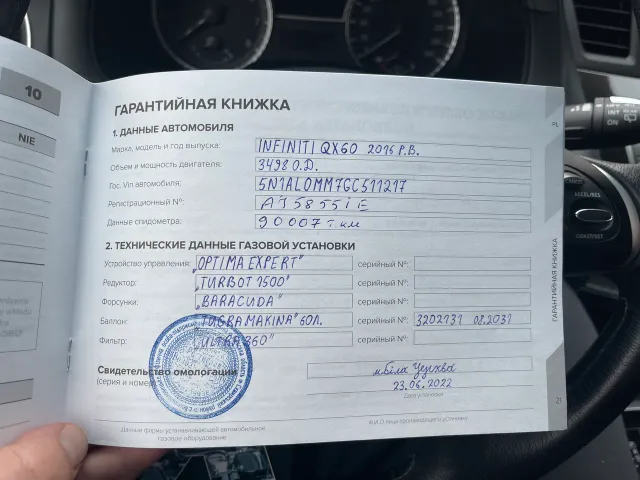 10
NIE
ГАРАНТИЙНАЯ КНИЖКА
1. ДАННЫЕ АВТОМОБИЛЯ
Марка, модель и год выпуска: INFINITI QX60 2015 Р.В.
Объем и мощность двигателя: 3498 О.Д.
Гос. Vin автомобиля: 5N1AL0MM7GC511217
Регистрационный №: AI5855IE
Данные спидометра: 90007 т.км
2. ТЕХНИЧЕСКИЕ ДАННЫЕ ГАЗОВОЙ УСТАНОВКИ
Устройство управления: „OPTIMA EXPERT" серийный №:
Редуктор: „TURBOT 1500" серийный №:
Форсунки: „BARACUDA" серийный №:
Баллон: „TUGRAMAKINA" 60Л. серийный №: 3202131 08.2031
Фильтр: „ULTRA 360" серийный №:
Свидетельство омологации
(серия и номер)
23.06.2022
Дата установки
Данные фирмы устанавливающей автомобильное
газовое оборудование
Ф.И.О лица производящего установку
PL
ГАРАНТИЙНАЯ КНИЖКА
21
CANCEL